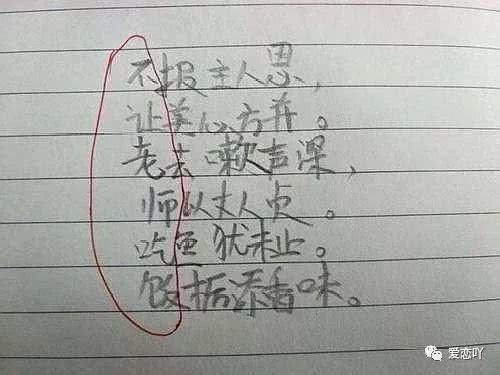 不报主人恩，
让美心方弃。
老去嗽声深，
师以丈人贞。
吃鱼犹未止。
饭后添香味。
爱恋吖